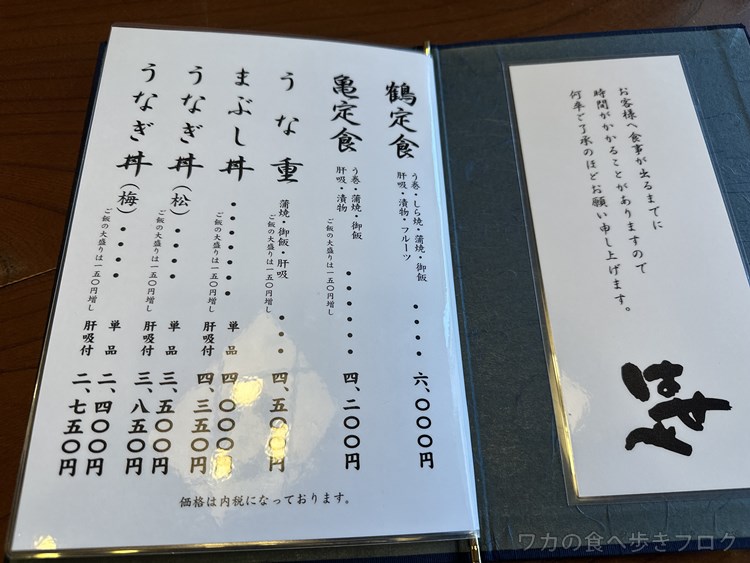 鶴定食
う巻・しら焼・蒲焼・御飯
肝吸・漬物・フルーツ
・・・・ 六、〇〇〇円
亀定食
う巻・蒲焼・御飯
肝吸・漬物
ご飯の大盛りは一五〇円増し
・・・・・・・ 四、二〇〇円
うな重
蒲焼・御飯・肝吸
ご飯の大盛りは一五〇円増し
・・・ 四、五〇〇円
まぶし丼
ご飯の大盛りは一五〇円増し
・・・・・・ 単品 四、〇〇〇円
肝吸付 四、三五〇円
うなぎ丼(松)
ご飯の大盛りは一五〇円増し
・・・・ 単品 三、五〇〇円
肝吸付 三、八五〇円
うなぎ丼(梅)
ご飯の大盛りは一五〇円増し
・・・・ 単品 二、四〇〇円
肝吸付 二、七五〇円
価格は内税になっております。
お客様へ食事が出るまでに
時間がかかることがありますので
何卒ご了承のほどお願い申し上げます。
ワカの食べ歩きブログ